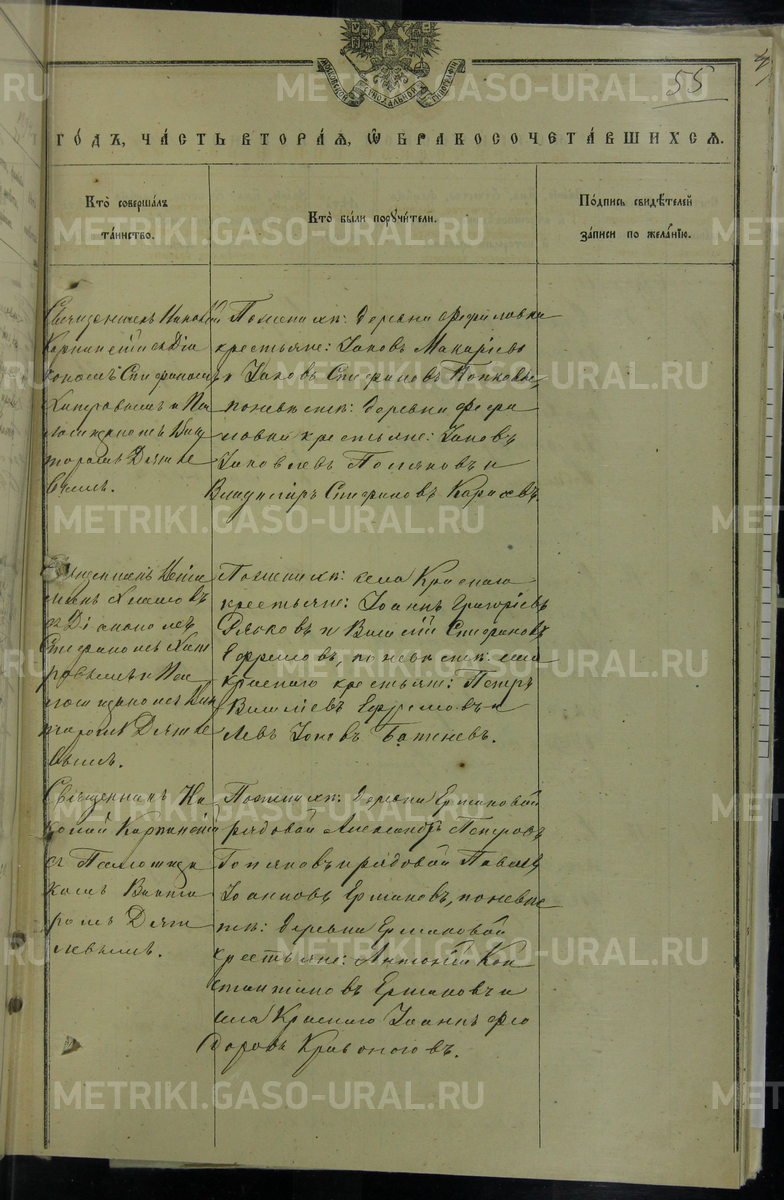 55
ГОДЪ, ЧАСТЬ ВТОРАЯ, Ѡ БРАКОСОЧЕТАВШИХСЯ.
Кто совершалъ
таинство.
Кто были поручители.
Подпись свидѣтелей
записи по желанію.
Священникъ Николай
Карпинскій съ Діа
кономъ Стефаномъ
Хитровымъ и Пса
ломщикомъ Вик
торомъ Дягиле
вымъ.
По женихѣ: деревни
крестьяне: Іаковъ Макаріевъ
и Іаковъ Стефановъ Попковы,
по невѣстѣ: деревни
крестьяне: Іаковъ
Іаковлевъ и
Владиміръ Стефановъ
Священникъ
съ Діакономъ
Стефаномъ Хит
ровымъ и Пса
ломщикомъ Вик
торомъ Дягиле
вымъ.
По женихѣ: села Краснаго
крестьяне: Іоаннъ Григоріевъ
и Василій Стефановъ
Ефремовъ, по невѣстѣ: села
Краснаго крестьяне: Петръ
Василіевъ Ефремовъ и
Левъ Іоновъ Батеневъ.
Священникъ Ни
колай Карпинскій
съ Псаломщи
комъ Викто
ромъ Дяги
левымъ.
По женихѣ: деревни Ермаковой
рядовой Александръ Петровъ
и рядовой Павелъ
Іоанновъ Ермаковъ, по невѣ
стѣ: деревни Ермаковой
крестьяне: Антоній Кон
стантиновъ Ермаковъ и
села Краснаго Іоаннъ Фео
доровъ Кривоноговъ.
METRIKI.GASO-URAL.RU